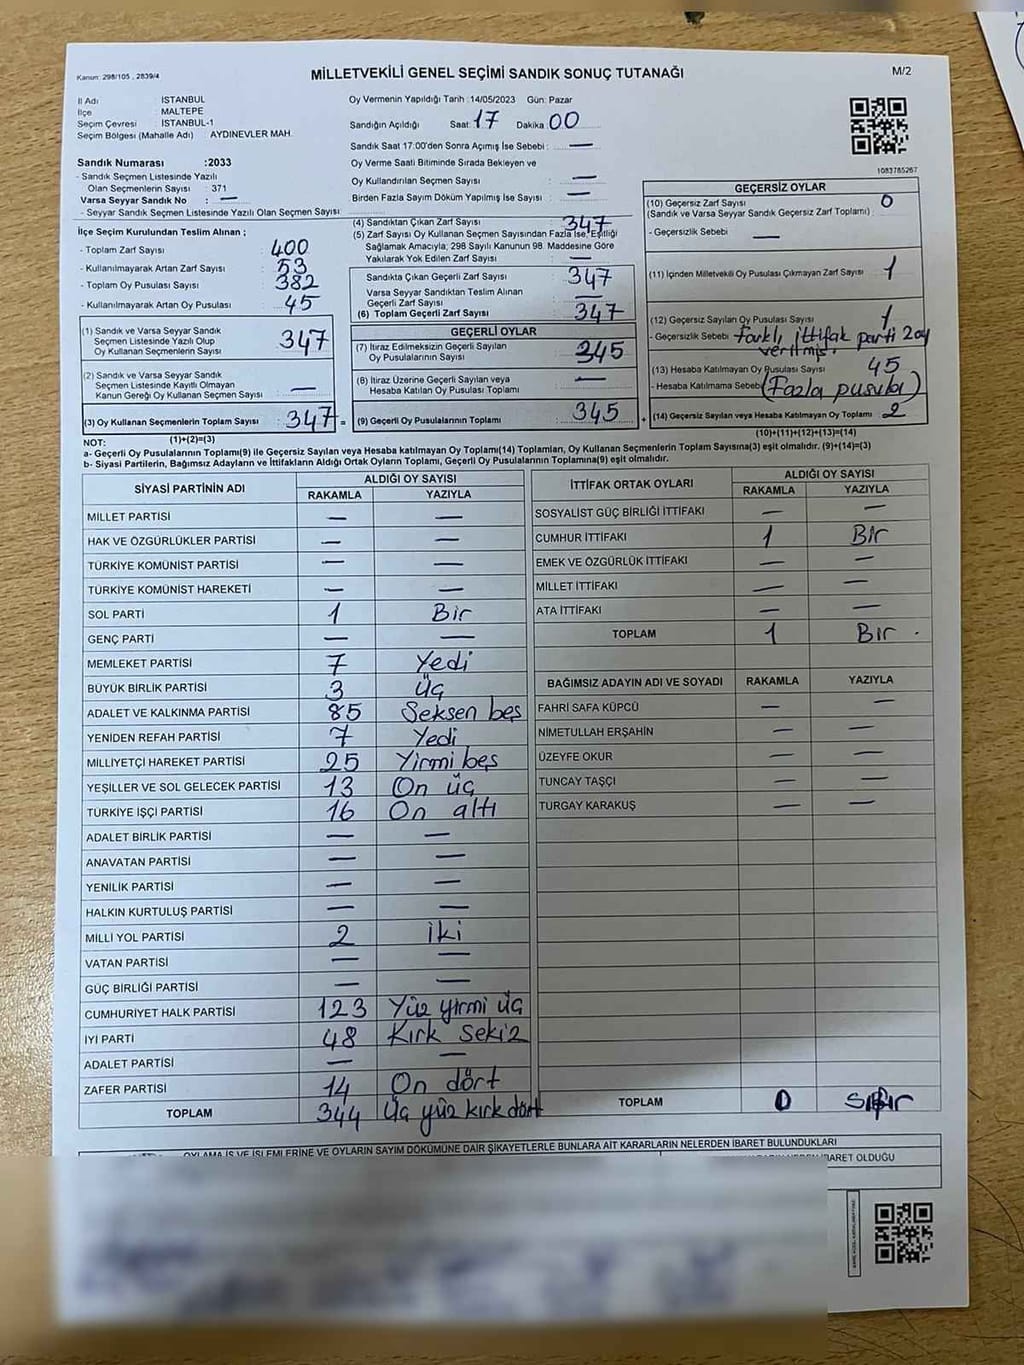 Kanun: 298/105 , 2839/4
MİLLETVEKİLİ GENEL SEÇİMİ SANDIK SONUÇ TUTANAĞI
M/2
İl Adı : İSTANBUL
İlçe : MALTEPE
Seçim Çevresi : İSTANBUL-1
Seçim Bölgesi (Mahalle Adı) : AYDINEVLER MAH.
Sandık Numarası :2033
- Sandık Seçmen Listesinde Yazılı
Olan Seçmenlerin Sayısı : 371
Varsa Seyyar Sandık No : —
- Seyyar Sandık Seçmen Listesinde Yazılı Olan Seçmen Sayısı:
İlçe Seçim Kurulundan Teslim Alınan ;
- Toplam Zarf Sayısı : 400
- Kullanılmayarak Artan Zarf Sayısı : 53
- Toplam Oy Pusulası Sayısı : 382
- Kullanılmayarak Artan Oy Pusulası : 45
(1) Sandık ve Varsa Seyyar Sandık
Seçmen Listesinde Yazılı Olup
Oy Kullanan Seçmenlerin Sayısı : 347
(2) Sandık ve Varsa Seyyar Sandık
Seçmen Listesinde Kayıtlı Olmayan
Kanun Gereği Oy Kullanan Seçmen Sayısı : —
(3) Oy Kullanan Seçmenlerin Toplam Sayısı : 347 =
(1)+(2)=(3)
Oy Vermenin Yapıldığı Tarih :14/05/2023 Gün: Pazar
Sandığın Açıldığı Saat: 17 Dakika 00
Sandık Saat 17:00'den Sonra Açımış İse Sebebi : —
Oy Verme Saati Bitiminde Sırada Bekleyen ve
Oy Kullandırılan Seçmen Sayısı : —
Birden Fazla Sayım Döküm Yapılmış İse Sayısı : —
(4) Sandıktan Çıkan Zarf Sayısı : 347
(5) Zarf Sayısı Oy Kullanan Seçmen Sayısından Fazla İse, Eşitliği
Sağlamak Amacıyla; 298 Sayılı Kanunun 98. Maddesine Göre
Yakılarak Yok Edilen Zarf Sayısı : —
Sandıkta Çıkan Geçerli Zarf Sayısı : 347
Varsa Seyyar Sandıktan Teslim Alınan
Geçerli Zarf Sayısı : —
(6) Toplam Geçerli Zarf Sayısı : 347
GEÇERLİ OYLAR
(7) İtiraz Edilmeksizin Geçerli Sayılan
Oy Pusulalarının Sayısı : 345
(8) İtiraz Üzerine Geçerli Sayılan veya
Hesaba Katılan Oy Pusulası Toplamı : —
(9) Geçerli Oy Pusulalarının Toplamı : 345 +
1083785267
GEÇERSİZ OYLAR
(10) Geçersiz Zarf Sayısı : 0
(Sandık ve Varsa Seyyar Sandık Geçersiz Zarf Toplamı)
- Geçersizlik Sebebi : —
(11) İçinden Milletvekili Oy Pusulası Çıkmayan Zarf Sayısı : 1
(12) Geçersiz Sayılan Oy Pusulası Sayısı : 1
- Geçersizlik Sebebi : Farklı ittifak parti 2 oy
verilmiş
(13) Hesaba Katılmayan Oy Pusulası Sayısı : 45
- Hesaba Katılmama Sebebi (Fazla pusula)
(14) Geçersiz Sayılan veya Hesaba Katılmayan Oy Toplamı : 2
(10)+(11)+(12)+(13)=(14)
NOT:
a- Geçerli Oy Pusulalarının Toplamı(9) ile Geçersiz Sayılan veya Hesaba katılmayan Oy Toplamı(14) Toplamları, Oy Kullanan Seçmenlerin Toplam Sayısına(3) eşit olmalıdır. (9)+(14)=(3)
b- Siyasi Partilerin, Bağımsız Adayların ve İttifakların Aldığı Ortak Oyların Toplamı, Geçerli Oy Pusulalarının Toplamına(9) eşit olmalıdır.
SİYASİ PARTİNİN ADI ALDIĞI OY SAYISI
RAKAMLA YAZIYLA
MİLLET PARTİSİ — —
HAK VE ÖZGÜRLÜKLER PARTİSİ — —
TÜRKİYE KOMÜNİST PARTİSİ — —
TÜRKİYE KOMÜNİST HAREKETİ — —
SOL PARTİ 1 Bir
GENÇ PARTİ — —
MEMLEKET PARTİSİ 7 Yedi
BÜYÜK BİRLİK PARTİSİ 3 Üç
ADALET VE KALKINMA PARTİSİ 85 Seksen beş
YENİDEN REFAH PARTİSİ 7 Yedi
MİLLİYETÇİ HAREKET PARTİSİ 25 Yirmi beş
YEŞİLLER VE SOL GELECEK PARTİSİ 13 On üç
TÜRKİYE İŞÇİ PARTİSİ 16 On altı
ADALET BİRLİK PARTİSİ — —
ANAVATAN PARTİSİ — —
YENİLİK PARTİSİ — —
HALKIN KURTULUŞ PARTİSİ — —
MİLLİ YOL PARTİSİ 2 İki
VATAN PARTİSİ — —
GÜÇ BİRLİĞİ PARTİSİ — —
CUMHURİYET HALK PARTİSİ 123 Yüz yirmi üç
İYİ PARTİ 48 Kırk sekiz
ADALET PARTİSİ — —
ZAFER PARTİSİ 14 On dört
TOPLAM 344 Üç yüz kırk dört
İTTİFAK ORTAK OYLARI ALDIĞI OY SAYISI
RAKAMLA YAZIYLA
SOSYALİST GÜÇ BİRLİĞİ İTTİFAKI — —
CUMHUR İTTİFAKI 1 Bir
EMEK VE ÖZGÜRLÜK İTTİFAKI — —
MİLLET İTTİFAKI — —
ATA İTTİFAKI — —
TOPLAM 1 Bir .
BAĞIMSIZ ADAYIN ADI VE SOYADI RAKAMLA YAZIYLA
FAHRİ SAFA KÜPCÜ — —
NİMETULLAH ERŞAHİN — —
ÜZEYFE OKUR — —
TUNCAY TAŞÇI — —
TURGAY KARAKUŞ — —
TOPLAM 0 Sıfır
OYLAMA İŞ VE İŞLEMLERİNE VE OYLARIN SAYIM DÖKÜMÜNE DAİR ŞİKAYETLERLE BUNLARA AİT KARARLARIN NELERDEN İBARET BULUNDUKLARI
İBARET OLDUĞU